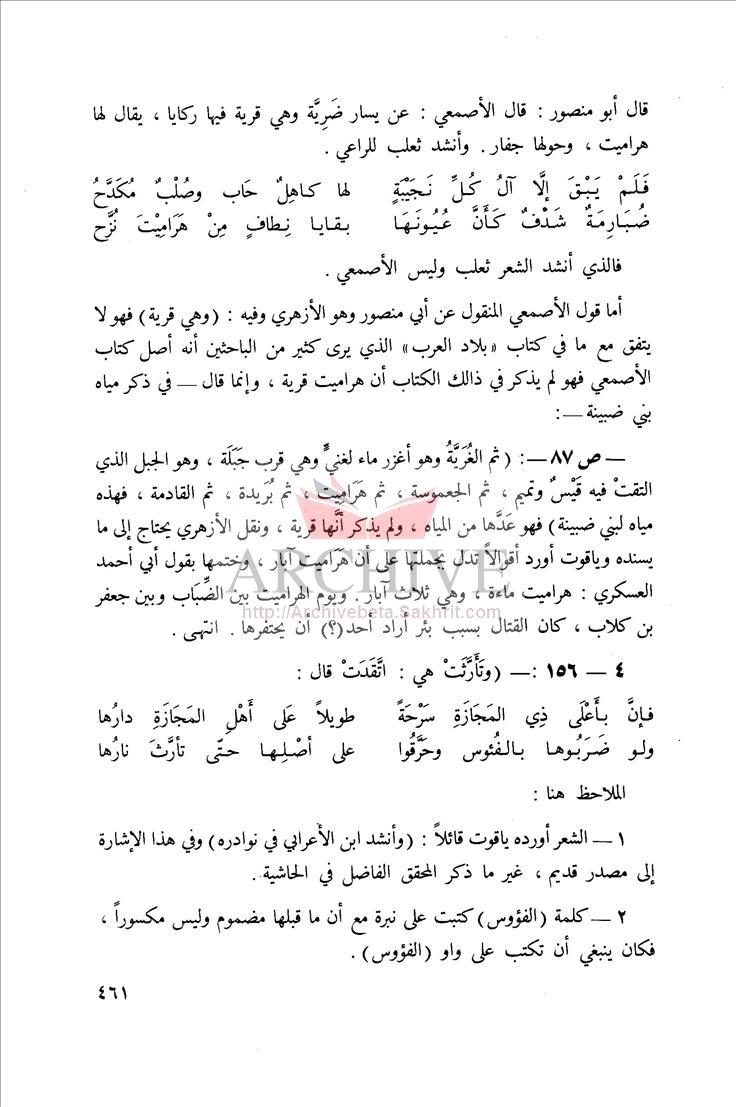 قال أبو منصور : قال الأصمعي : عن يسار ضَرِيَّة وهي قرية فيها ركايا ، يقال لها
هراميت ، وحولها جفار. وأنشد ثعلب للراعي .
فَلَمْ يَبْقَ إلَّا آلُ كُلِّ نَجيْبَةٍ لها كاهِلٌ حَاب وصُلْبٌ مُكَدَّحُ
ضُبَارِمَةٌ شَدْفٌ كَأَنَّ عُيُونَهَا بقايا نِطافٍ مِنْ هَرَامِيْتَ نُزَّح
فالذي أنشد الشعر ثعلب وليس الأصمعي .
أما قول الأصمعي المنقول عن أبي منصور وهو الأزهري وفيه : (وهي قرية) فهو لا
يتفق مع ما في كتاب «بلاد العرب» الذي يرى كثير من الباحثين أنه أصل كتاب
الأصمعي فهو لم يذكر في ذالك الكتاب أن هراميت قرية ، وإنما قال — في ذكر مياه
بني ضبينة —:
— ص ٨٧ —: (ثم الغُرَيَّةُ وهو أغزر ماء لغنيٍّ وهي قرب جَبَلَة ، وهو الجبل الذي
التقتْ فيه قَيْسٌ وتميم ، ثم الجعموسة ، ثم هَرَامِيت ، ثم بُرَيدة ، ثم القادمة ، فهذه
مياه لبني ضبينة) فهو عَدَّها من المياه ، ولم يذكر أنَّها قرية ، ونقل الأزهري يحتاج إلى ما
يسنده وياقوت أورد أقوالاً تدل بجملتها على أن هراميت آبار ، وختمها بقول أبي أحمد
العسكري : هراميت ماءة ، وهي ثلاث آبار. ويوم الهراميت بين الضِّبَاب وبين جعفر
بن كلاب ، كان القتال بسبب بئر أراد أحد(؟) أن يحتفرها . انتهى .
٤ — ١٥٦ :— (وتَأَرَّثَتْ هي : اتَّقَدَتْ قال :
فإنَّ بأَعْلَى ذِي المَجَازَةِ سَرْحَةً طويلاً عَلى أَهْلِ المَجَازَةِ دارُها
ولو ضَرَبُوها بالفُئوس وحَرَّقُوا على أصْلِها حتّى تأرَّثَ نارُها
الملاحظ هنا :
١ — الشعر أورده ياقوت قائلاً : (وأنشد ابن الأعرابي في نوادره) وفي هذا الإشارة
إلى مصدر قديم ، غير ما ذكر المحقق الفاضل في الحاشية .
٢ — كلمة (الفؤوس) كتبت على نبرة مع أن ما قبلها مضموم وليس مكسوراً ،
فكان ينبغي أن تكتب على واو (الفؤوس) .
٤٦١
ARCHIVE
http://Archivebeta.Sakhrit.com